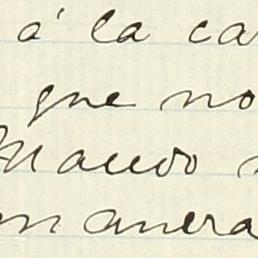 á la ca
que no
Mando
manera